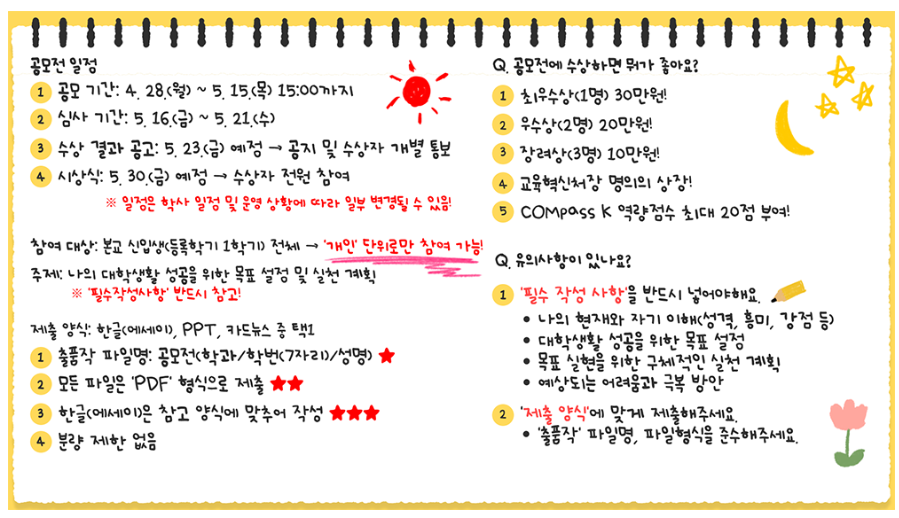 공모전 일정
1 공모 기간: 4. 28.(월) ~ 5. 15.(목) 15:00까지
2 심사 기간: 5. 16.(금) ~ 5. 21.(수)
3 수상 결과 공고: 5. 23.(금) 예정 → 공지 및 수상자 개별 통보
4 시상식: 5. 30.(금) 예정 → 수상자 전원 참여
※ 일정은 학사 일정 및 운영 상황에 따라 일부 변경될 수 있음!
참여 대상: 본교 신입생(등록학기 1학기) 전체 → '개인' 단위로만 참여 가능!
주제: 나의 대학생활 성공을 위한 목표 설정 및 실천 계획
※ '필수작성사항' 반드시 참고!
제출 양식: 한글(에세이), PPT, 카드뉴스 중 택1
1 출품작 파일명: 공모전(학과/학번(7자리)/성명) ★
2 모든 파일은 'PDF' 형식으로 제출 ★★
3 한글(에세이)은 참고 양식에 맞추어 작성 ★★★
4 분량 제한 없음
Q. 공모전에 수상하면 뭐가 좋아요?
1 최우수상(1명) 30만원!
2 우수상(2명) 20만원!
3 장려상(3명) 10만원!
4 교육혁신처장 명의의 상장!
5 COMpass K 역량점수 최대 20점 부여!
Q. 유의사항이 있나요?
1 '필수 작성 사항'을 반드시 넣어야해요.
• 나의 현재와 자기 이해(성격, 흥미, 강점 등)
• 대학생활 성공을 위한 목표 설정
• 목표 실현을 위한 구체적인 실천 계획
• 예상되는 어려움과 극복 방안
2 '제출 양식'에 맞게 제출해주세요.
• '출품작' 파일명, 파일형식을 준수해주세요.